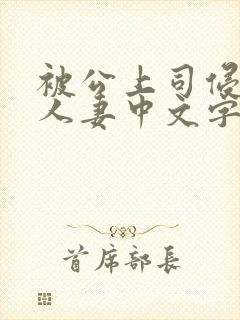 被公上司侵
人妻中文字
首席部長